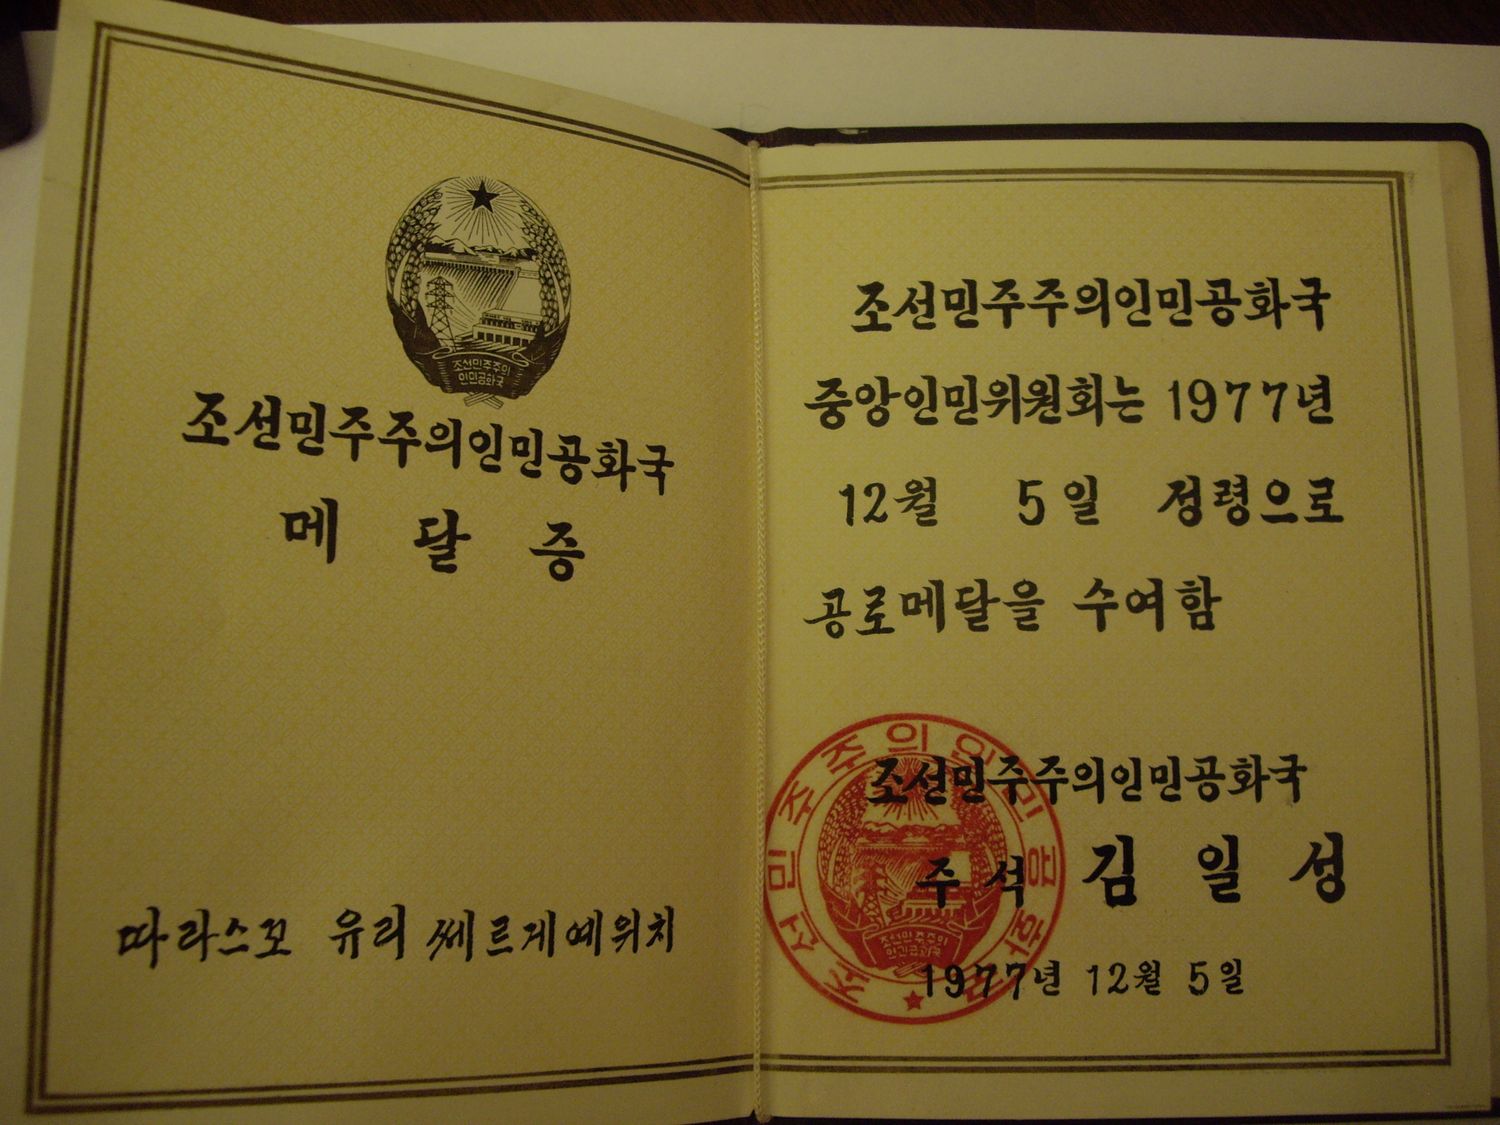 조선민주주의
인민공화국
조선민주주의인민공화국
메달증
따라스꼬 유리 쎄르게예위치
조선민주주의인민공화국
중앙인민위원회는 1977년
12월 5일 정령으로
공로메달을 수여함
조선민주주의인민공화국
조선민주주의인민공화국
주석 김일성
조선민주주의
인민공화국
1977년 12월 5일